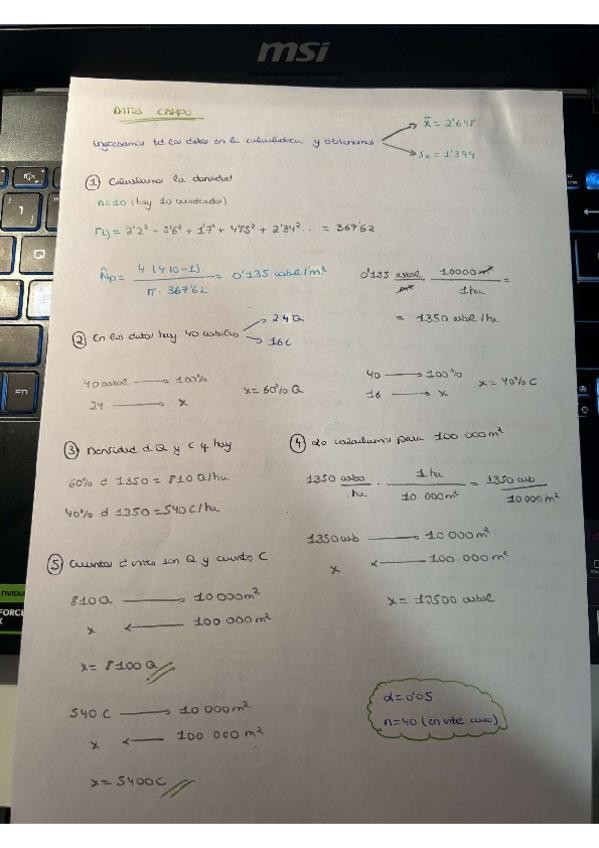 msi
DATOS CAMPO
ingresamos td los datos en la calculadora y obtenemos
x̄ = 2'698
Sx = 1'394
① Calculamos la densidad
n=10 (hay 10 cuadrados)
rij = 2'2² + 3'6² + 1'7² + 4'75² + 2'34² ... = 367'62
N̂p = 4(4·10-1) / π·367'62 = 0'135 arbol/m²
0'135 arbol/m² · 10000m²/1ha =
= 1350 arbol/ha
② En los datos hay 40 arboles
24 Q
16 C
40 arbol → 100%
24 → x
x = 60% Q
40 → 100%
16 → x
x = 40% C
③ Densidad d Q y C q hay
60% d 1350 = 810 Q/ha
40% d 1350 = 540 C/ha
④ Lo calculamos para 100.000m²
1350 arbo/ha · 1 ha/10.000m² = 1350 arb/10000m²
1350 arb → 10 000m²
x ← 100.000m²
x = 13500 arbol
⑤ Cuantos d estos son Q y cuanto C
810Q → 10 000m²
x ← 100 000m²
x = 8100 Q
540 C → 10 000m²
x ← 100 000m²
x = 5400C
α=0'05
n=40 (en este caso)